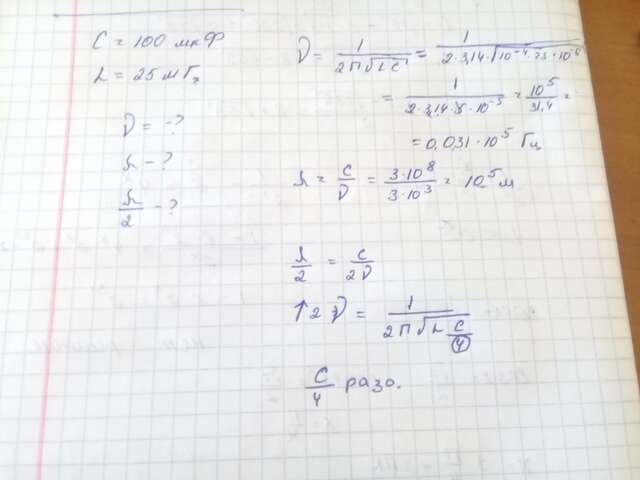 C = 100 мкФ
L = 25 мГн
ν = -?
λ - ?
λ/2 - ?
ν = 1/(2π√LC) = 1/(2·3,14·√(10⁻⁴·25·10⁻⁶))
= 1/(2·3,14·5·10⁻⁵) = 10⁵/31,4 =
= 0,031·10⁵ Гц
λ = c/ν = 3·10⁸/3·10³ = 10⁵ м
λ/2 = c/2ν
↑2ν = 1/(2π√(L C/4))
C/4 раза.